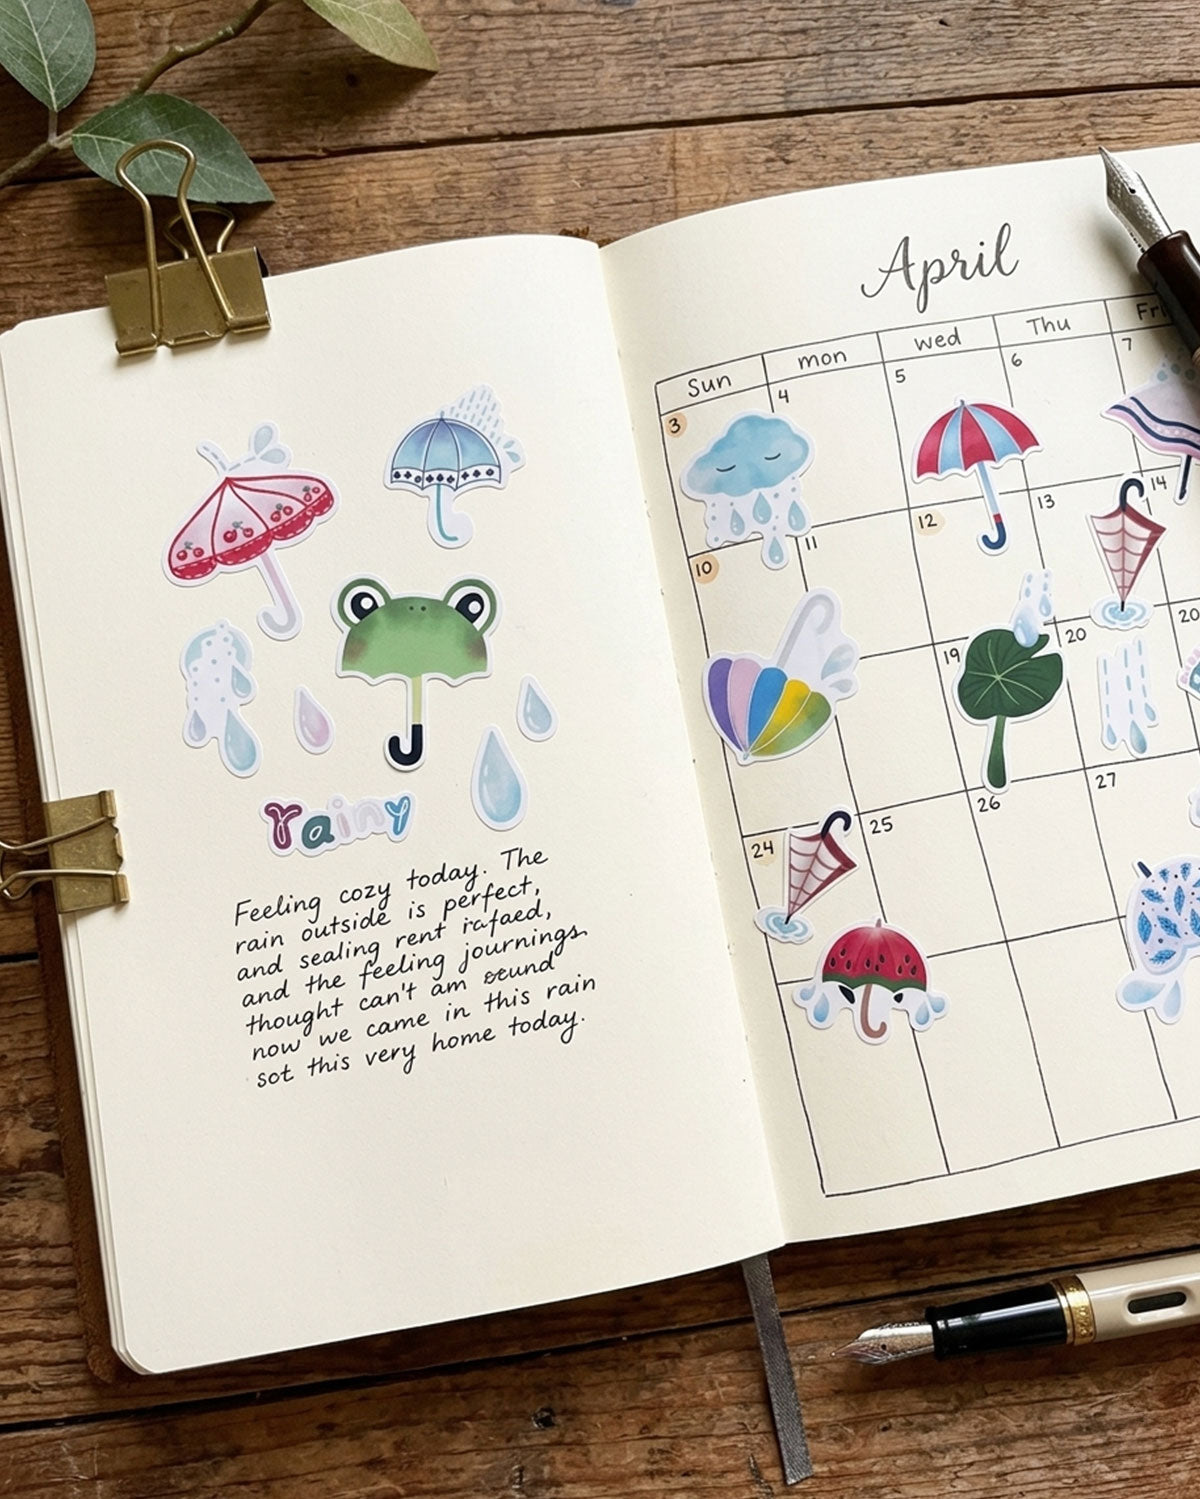 rainy
Feeling cozy today. The
rain outside is perfect,
and sealing rent rafaed,
and the feeling journings
thought can't am sound
now we came in this rain
sot this very home today.
April
Sun mon wed Thu Fri
3 4 5 6 7
10 11 12 13 14
19 20 20
24 25 26 27